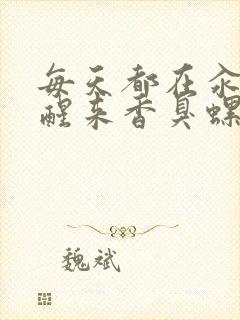 每天都在汆
醒来香臭螺
魏斌